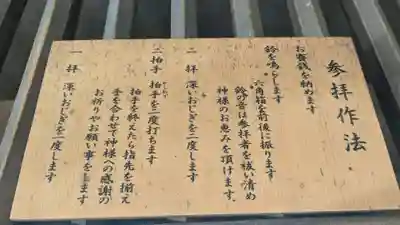 参拝作法
お賽銭を納めます
鈴を鳴らします
六角箱を前後に振ります
鈴の音は参拝者を祓い清め
神様のお恵みを頂けます。
二 拝 深いおじぎを二度します
二拍手 拍手を二度打ちます
拍手を終えたら指先を揃え
手を合わせて神様への感謝の
お祈りやお願い事をします
一 拝 深いおじぎを一度します